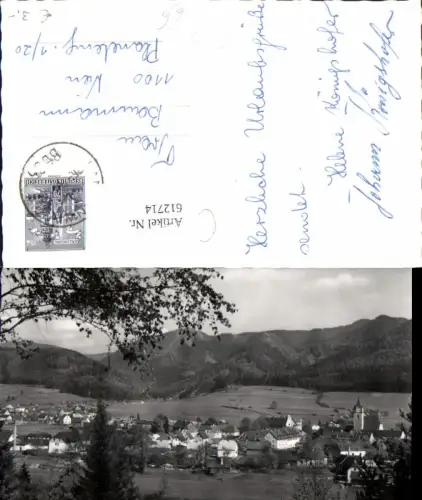 € 3,-
Herzliche Urlaubsgrüße
sendet
Helene Königshofer
Johann Königshofer
Frau
Baumann
1100 Wien
1/20
Artikel Nr.
612714
REPUBLIK ÖSTERREICH